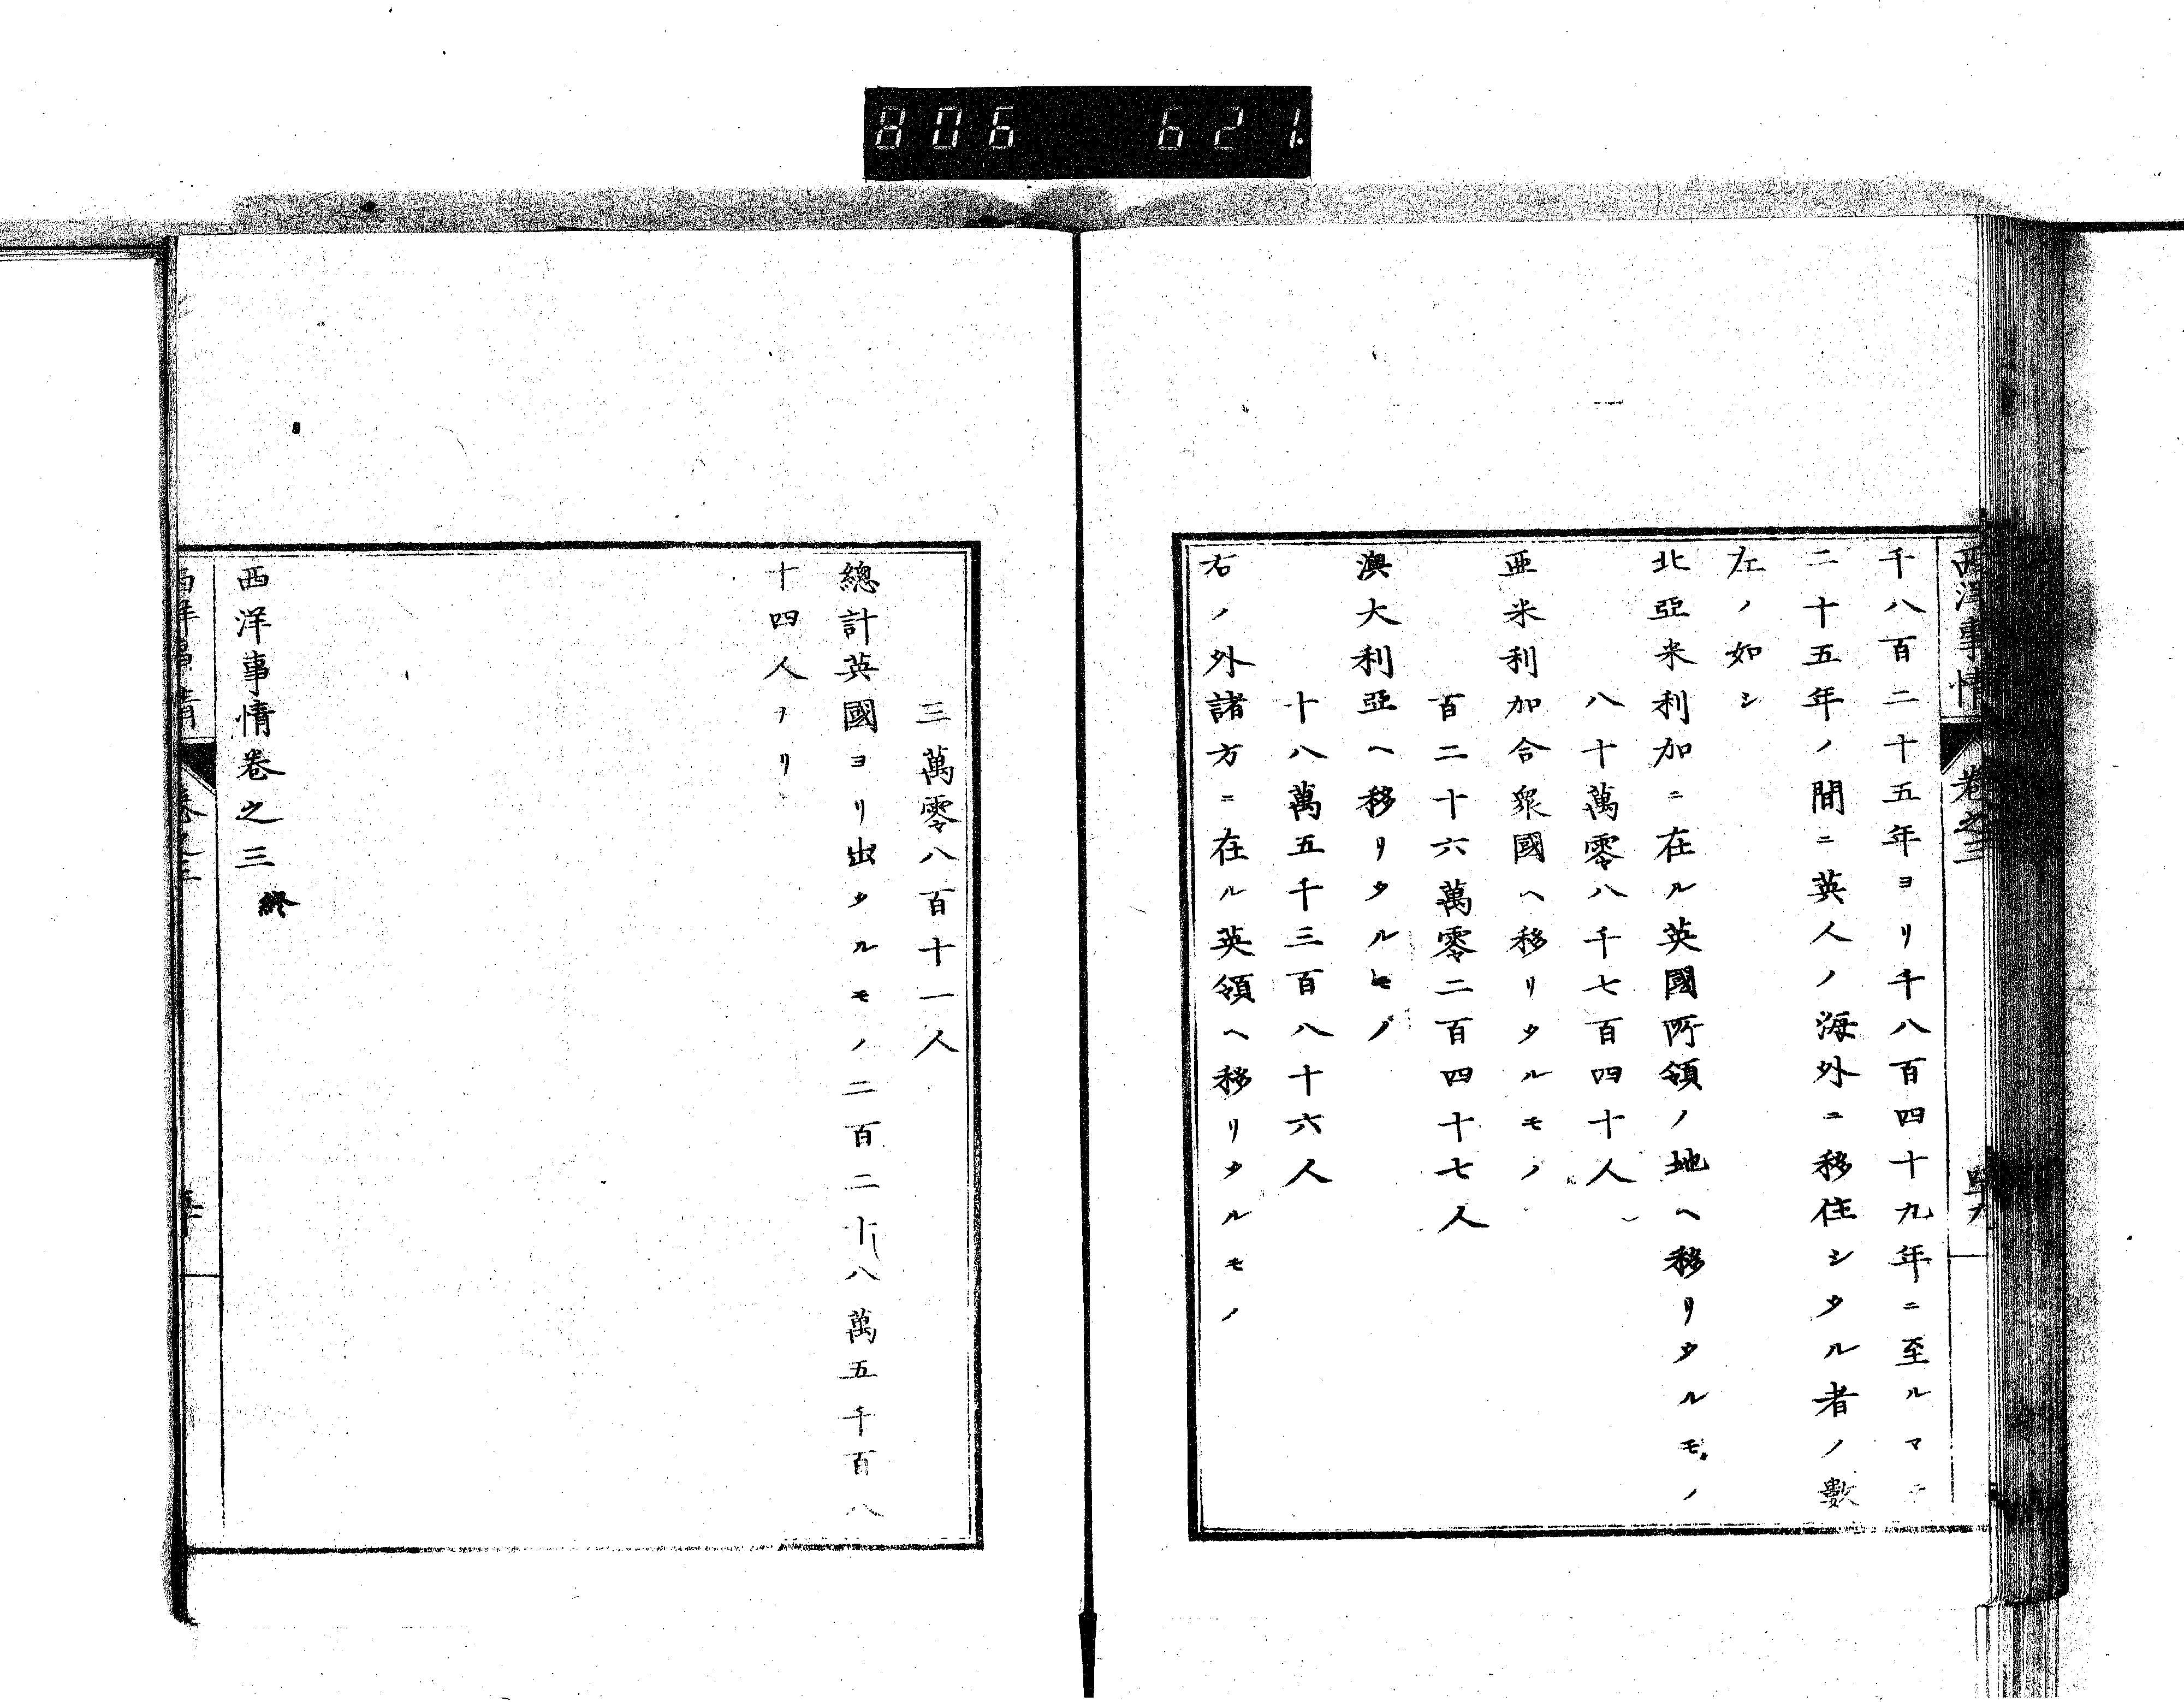 806 621
西洋事情 卷之三 四十九
千八百二十五年ヨリ千八百四十九年ニ至ルマデ
二十五年ノ間ニ英人ノ海外ニ移住シタル者ノ數
左ノ如シ
北亞米利加ニ在ル英國所領ノ地ヘ移リタルモノ
八十萬零八千七百四十人
亜米利加合衆國ヘ移リタルモノ
百二十六萬零二百四十七人
澳大利亞ヘ移リタルモノ
十八萬五千三百八十六人
右ノ外諸方ニ在ル英領ヘ移リタルモノ
三萬零八百十一人
總計英國ヨリ出タルモノ二百二十八萬五千百八
十四人ナリ
西洋事情卷之三 終
西洋事情 卷之三